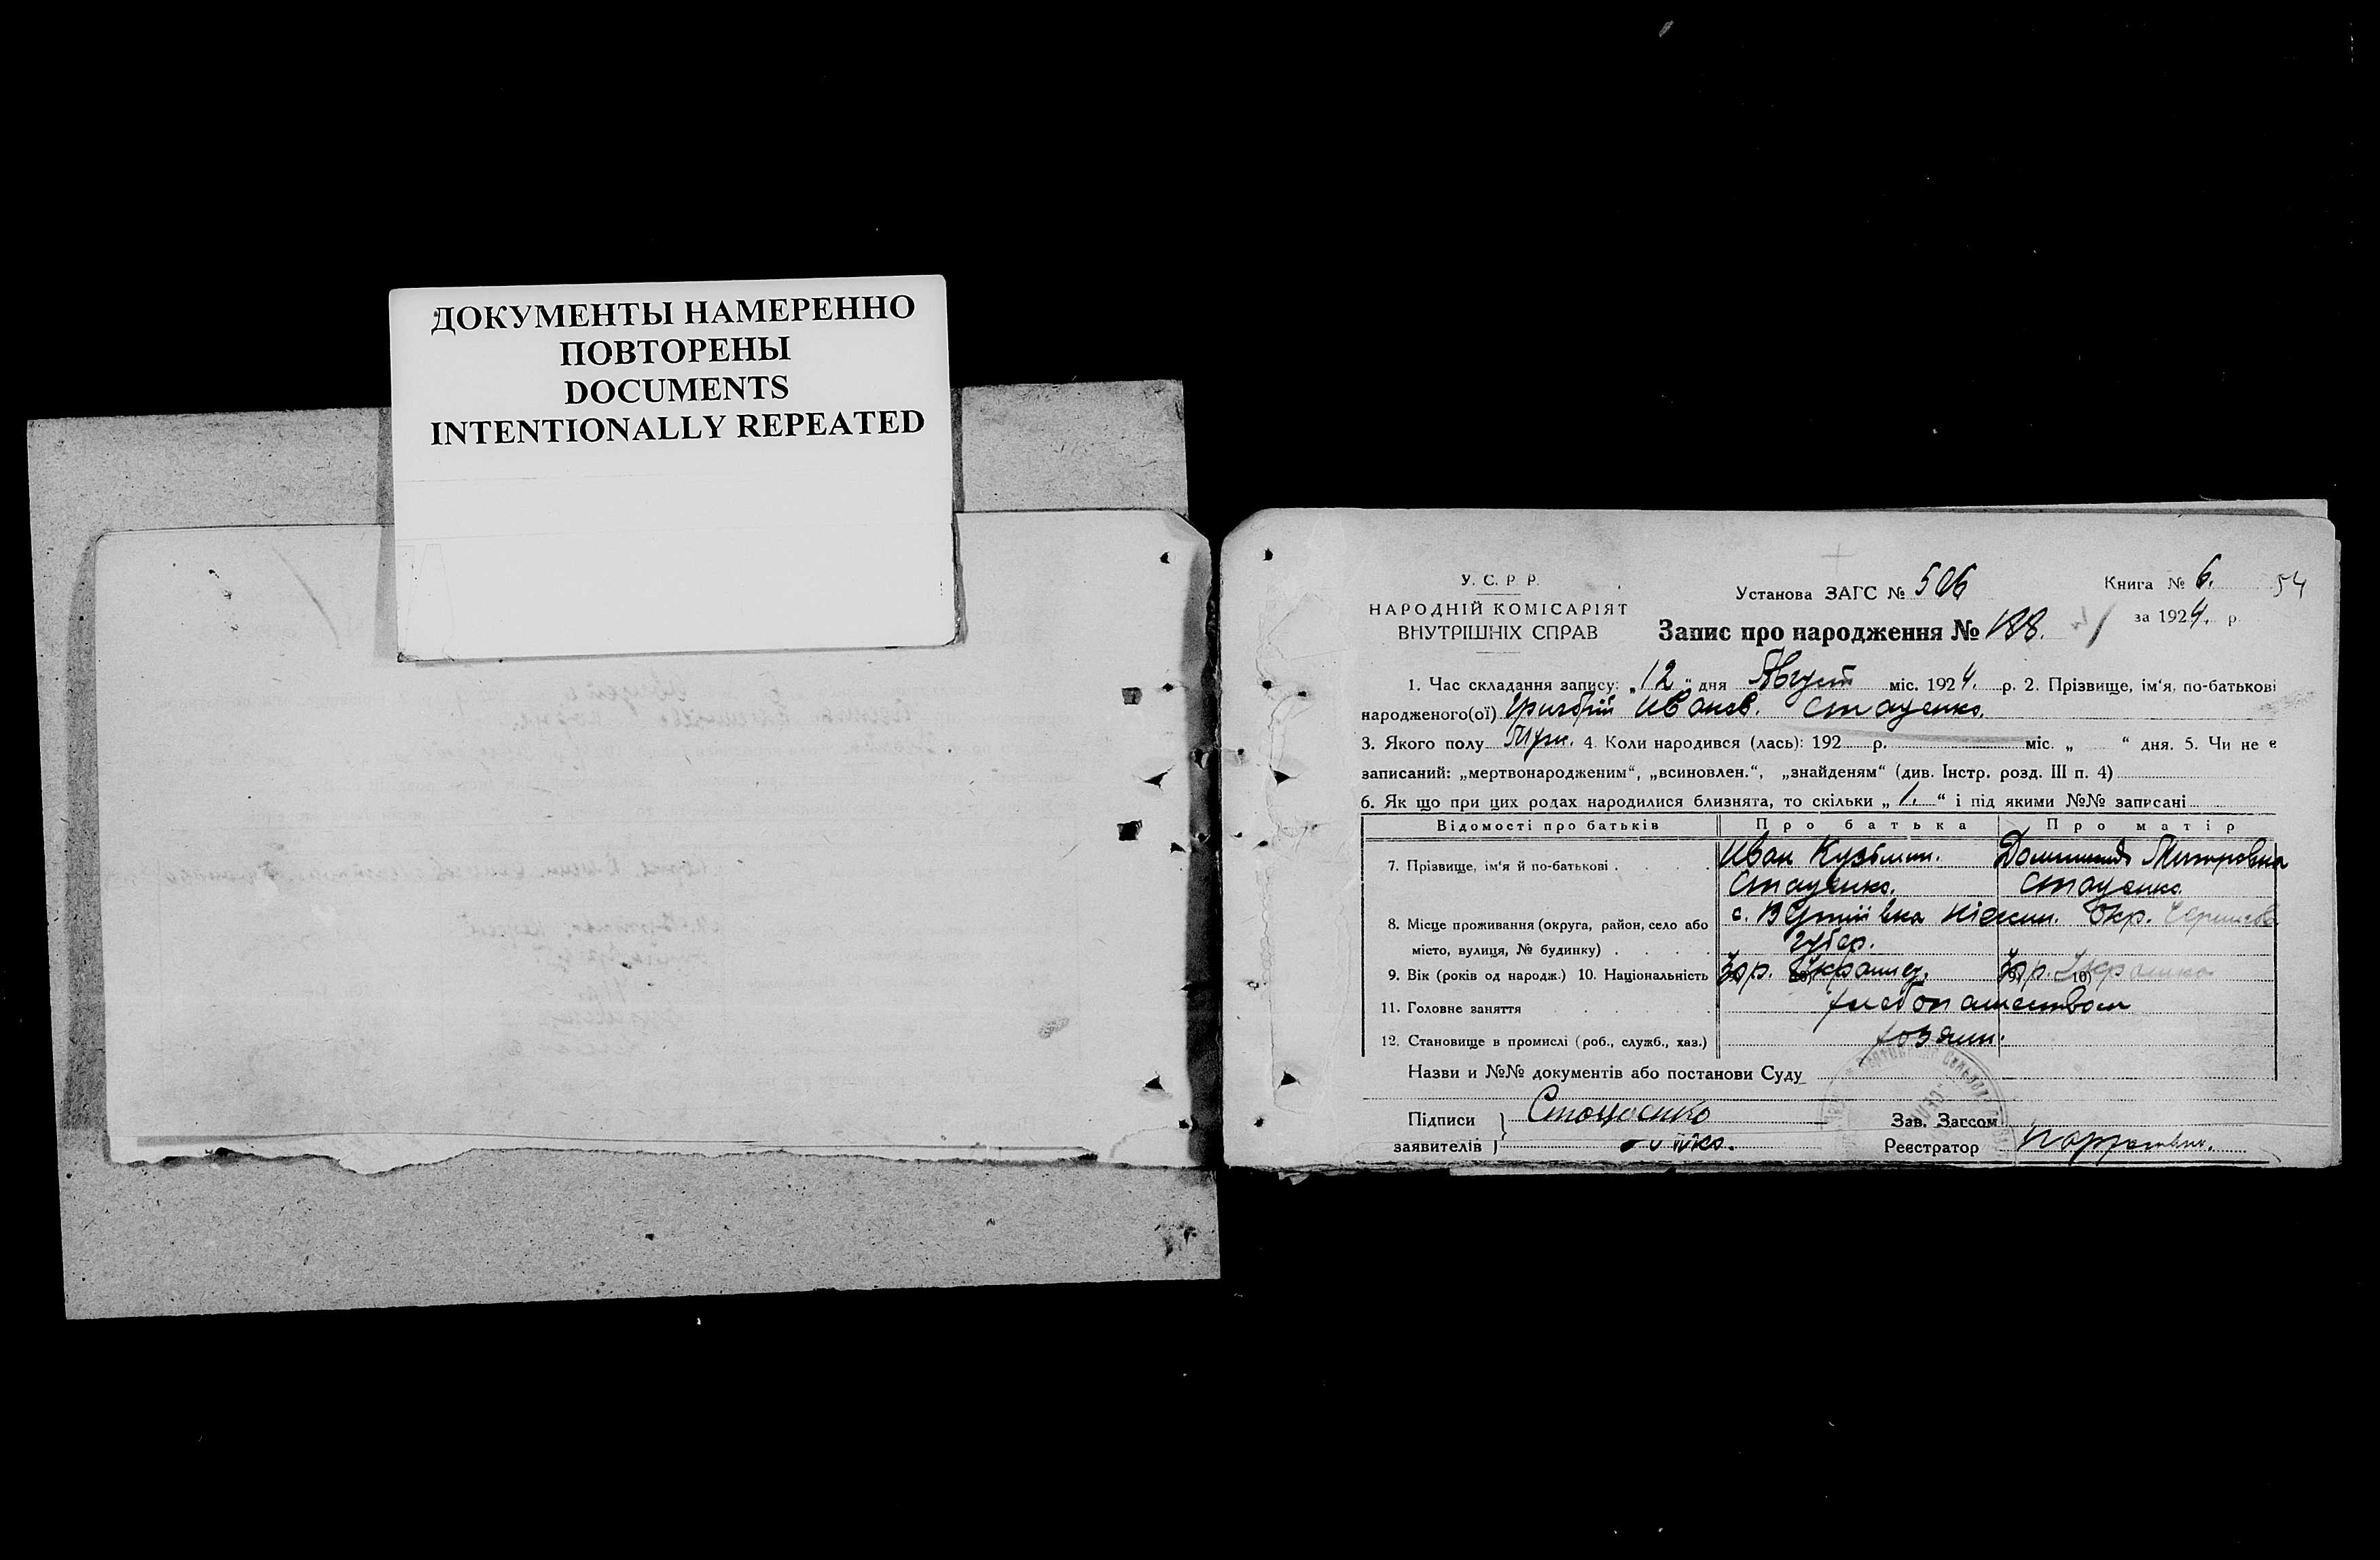 ДОКУМЕНТЫ НАМЕРЕННО
ПОВТОРЕНЫ
DOCUMENTS
INTENTIONALLY REPEATED
У. С. Р Р.
НАРОДНІЙ КОМІСАРІЯТ
ВНУТРІШНІХ СПРАВ
Установа ЗАГС № 506
Запис про народження № 188.
Книга № 6. 54
за 1924. р
1. Час складання запису: „12“ дня Август міс. 1924. р. 2. Прізвище, ім‘я, по-батькові
народженого(ої) Григорій Иванов. Стаценко.
3. Якого полу Муж. 4. Коли народився (лась): 192 р. міс. „ “ дня. 5. Чи не є
записаний: „мертвонародженим“, „всиновлен.“, „знайденям“ (див. Інстр. розд. III п. 4)
6. Як що при цих родах народилися близнята, то скільки „1.“ і під якими №№ записані
Відомості про батьків Про батька Про матір
7. Прізвище, ім‘я й по-батькові . Иван Кузьмин.
Стаценко. Стаценко
8. Місце проживання (округа, район, село або с. Вертіївка Ніжин. Окр. Чернигов
місто, вулиця, № будинку) . губер.
9. Вік (років од народж.) 10. Національність
11. Головне заняття хлебопашеством
12. Становище в промислі (роб., служб., хаз.) хозяин.
Назви и №№ документів або постанови Суду
Підписи Стаценко Зав. Загсом
заявителів Реєстратор